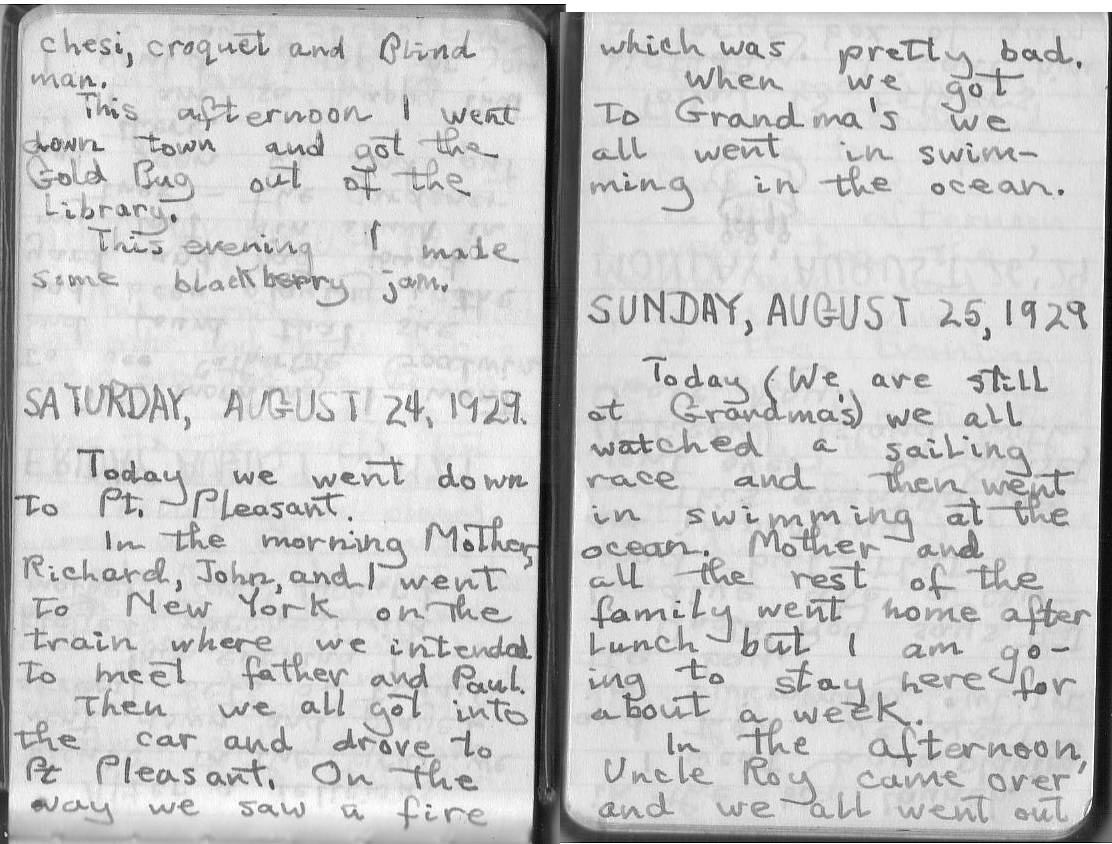 chesi, croquet and Blind
man.
This afternoon I went
down town and got the
Gold Bug out of the
Library.
This evening I made
some blackberry jam.
SATURDAY, AUGUST 24, 1929.
Today we went down
to Pt. Pleasant.
In the morning Mother,
Richard, John, and I went
to New York on the
train where we intended
to meet father and Paul.
Then we all got into
the car and drove to
Pt Pleasant. On the
way we saw a fire
which was pretty bad.
When we got
to Grandma's we
all went in swim-
ming in the ocean.
SUNDAY, AUGUST 25, 1929
Today (We are still
at Grandma's) we all
watched a sailing
race and then went
in swimming at the
ocean. Mother and
all the rest of the
family went home after
lunch but I am go-
ing to stay here for
about a week.
In the afternoon,
Uncle Roy came over
and we all went out